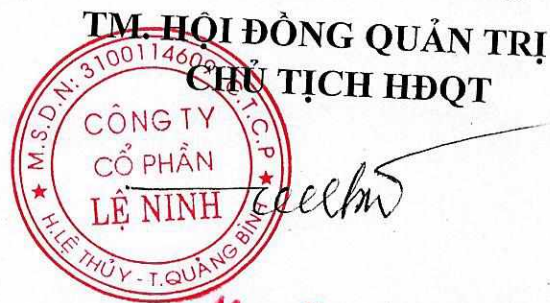 TM. HỘI ĐỒNG QUẢN TRỊ
CHỦ TỊCH HĐQT
M.S.D.N: 3100114609 C.T.C.P
CÔNG TY
CỔ PHẦN
LỆ NINH
H.LỆ THỦY - T.QUẢNG BÌNH